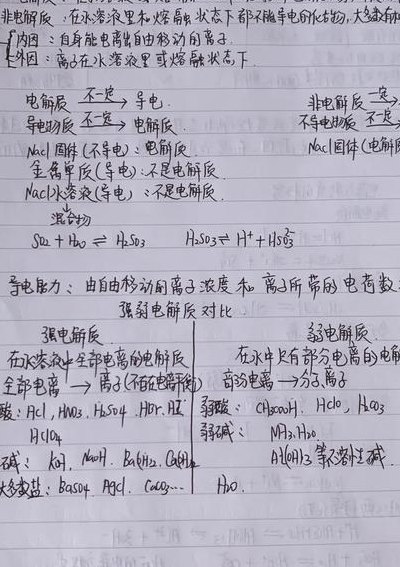 非电解质：在水溶液里和熔融状态下都不能导电的化合物，大多数有
内因：自身能电离出自由移动的离子.
外因：离子在水溶液里或熔融状态下.
电解质 不一定→ 导电.
非电解质 一定→
导电物质 不一定→ 电解质.
不导电物质 不一定
NaCl固体(不导电)：电解质.
NaCl固体(电解
金属单质(导电)：不是电解质.
NaCl水溶液(导电)：不是电解质.
↓
混合物
SO2 + H2O ⇌ H2SO3 H2SO3 ⇌ H⁺ + HSO3⁻
导电能力：由自由移动的离子浓度和离子所带的电荷数
强弱电解质对比
强电解质
弱电解质
在水溶液中全部电离的电解质
在水中只有部分电离的电解
全部电离 → 离子(不存在电离平衡)
部分电离 → 分子,离子
酸：HCl, HNO3, H2SO4, HBr, HI
弱酸：CH3COOH, HClO, H2CO3
HClO4
弱碱：NH3·H2O
碱：KOH, NaOH, Ba(OH)2, Ca(OH)2
Al(OH)3 等不溶性碱.
大多数盐：BaSO4, AgCl, CaCO3...
H2O.